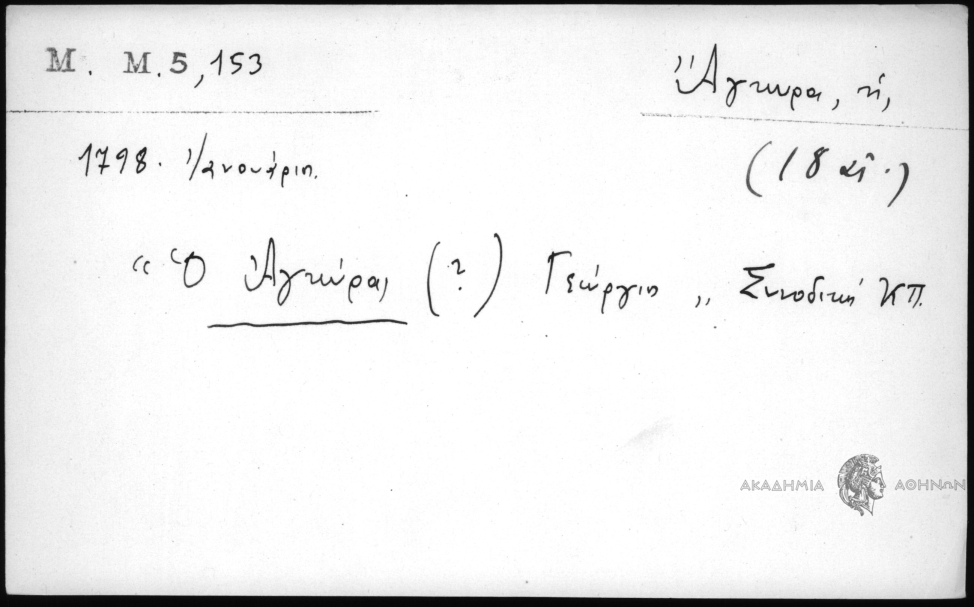 Μ. Μ.5,153
Ἄγκυρα, ἡ,
1798. Ἰανουάριος.
(18 αἰ.)
« Ὁ Ἀγκύρας (?) Γεώργιος „ Συνοδικὴ ΚΠ.
ΑΚΑΔΗΜΙΑ ΑΘΗΝΩΝ